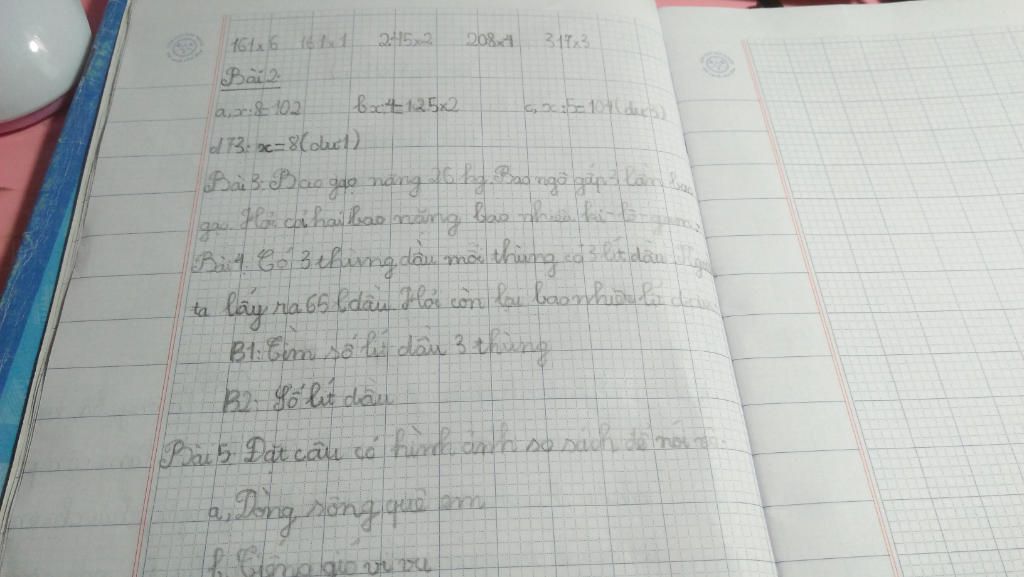 161x6 161x1 245x2 208x4 317x3
Bài 2
a, x:8=102 b x:4=125x2 c, x:5=104(dư3)
d 73:x=8(dư1)
Bài 3: Bao gạo nặng 26 kg. Bao ngô gấp 3 lần bao
gạo. Hỏi cả hai bao nặng bao nhiêu ki-lô-gam?
Bài 4. Có 3 thùng dầu mỗi thùng có lít dầu
ta lấy ra 65 l dầu. Hỏi còn lại bao nhiêu lít dầu
B1: Tìm số lít dầu 3 thùng
B2: Số lít dầu
Bài 5: Đặt câu có hình ảnh so sách để nói
a, Dòng sông quê em
Tiếng gió vi vu